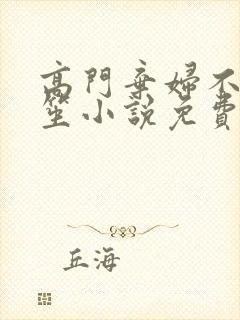 高門棄婦不
笙小說免費
丘海